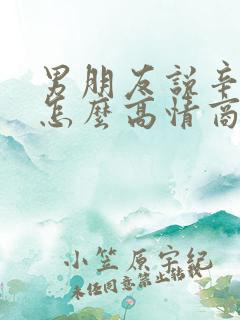 男朋友說辛
怎麼高情商
小笠原宇紀
未经同意禁止转载